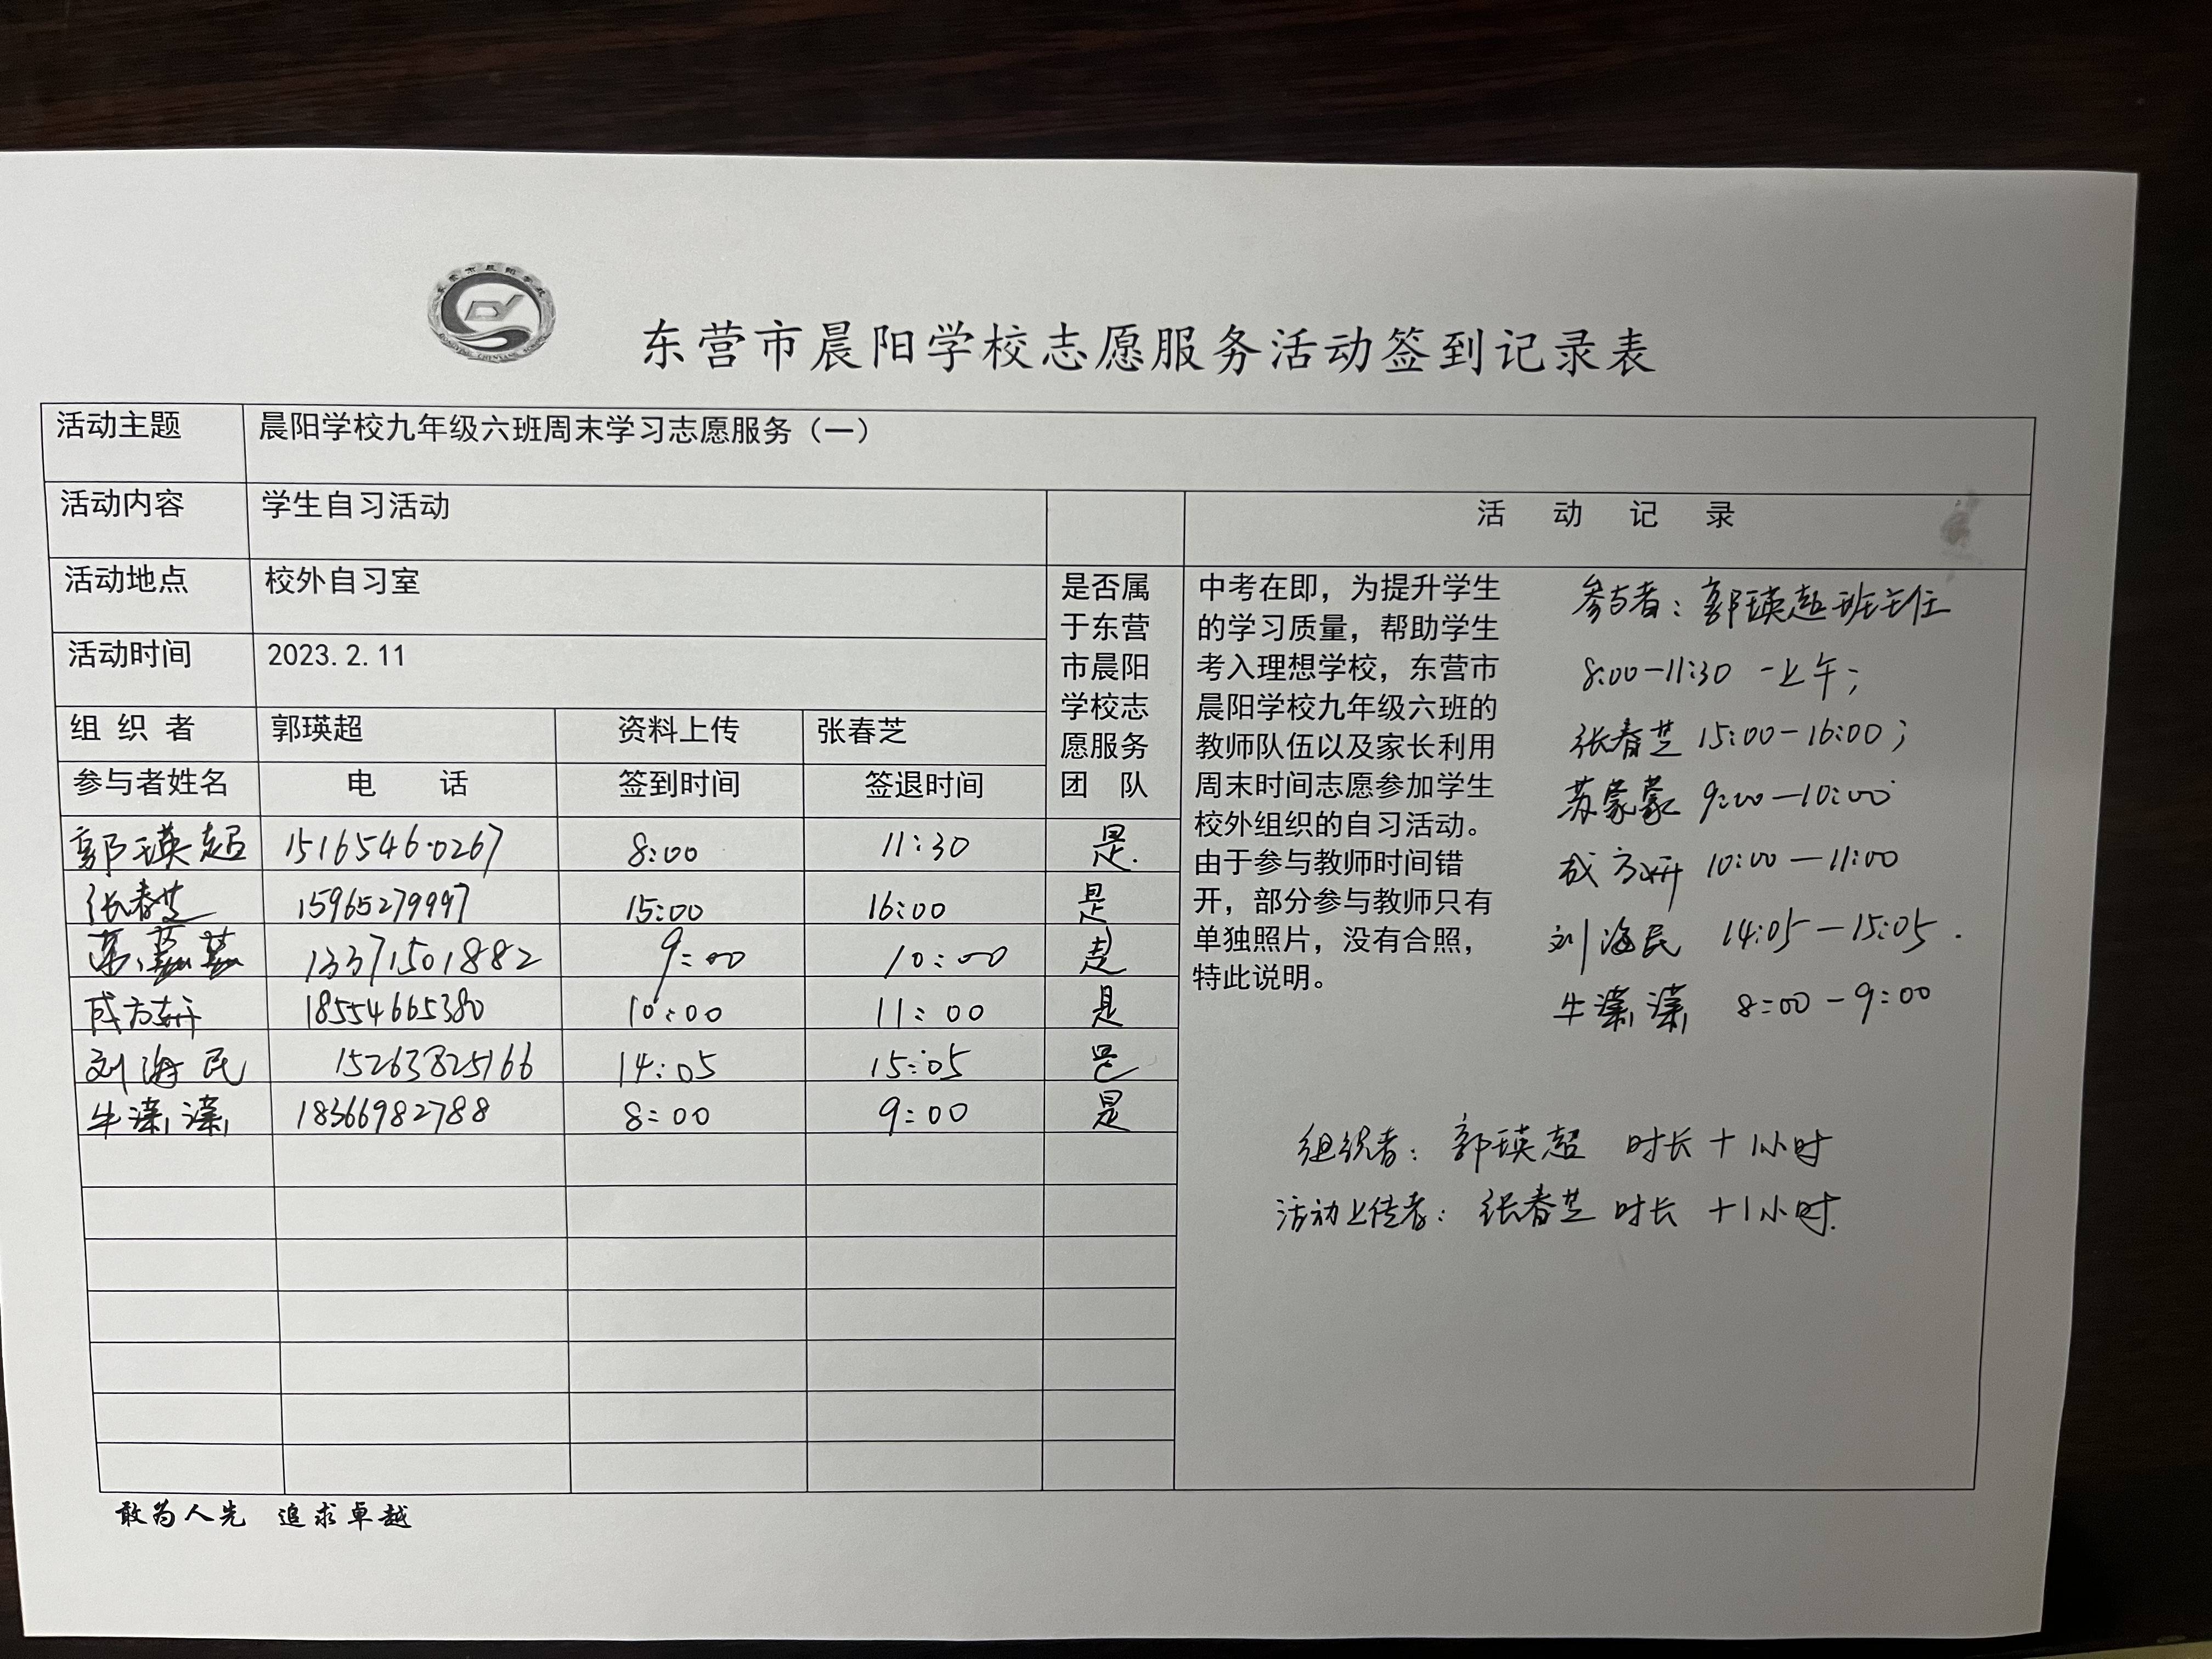 东营市晨阳学校志愿服务活动签到记录表
活动主题 晨阳学校九年级六班周末学习志愿服务（一）
活动内容 学生自习活动
活动地点 校外自习室
活动时间 2023.2.11
组织者 郭瑛超 资料上传 张春芝
参与者姓名 电话 签到时间 签退时间
是否属
于东营
市晨阳
学校志
愿服务
团队
郭瑛超 15165460267 8:00 11:30 是.
张春芝 15965279997 15:00 16:00 是
13371501882 9:00 10:00 是
成方妍 18554665380 10:00 11:00 是
刘海民 15263825166 14:05 15:05 是
牛潇潇 18366982788 8:00 9:00 是
活动记录
中考在即，为提升学生
的学习质量，帮助学生
考入理想学校，东营市
晨阳学校九年级六班的
教师队伍以及家长利用
周末时间志愿参加学生
校外组织的自习活动。
由于参与教师时间错
开，部分参与教师只有
单独照片，没有合照，
特此说明。
参与者：郭瑛超班主任
8:00-11:30 -上午；
张春芝 15:00-16:00；
苏蒙蒙 9:00-10:00
成方妍 10:00-11:00
刘海民 14:05-15:05.
牛潇潇 8:00-9:00
组织者：郭瑛超 时长+1小时
活动上传者：张春芝 时长+1小时.
敢为人先 追求卓越